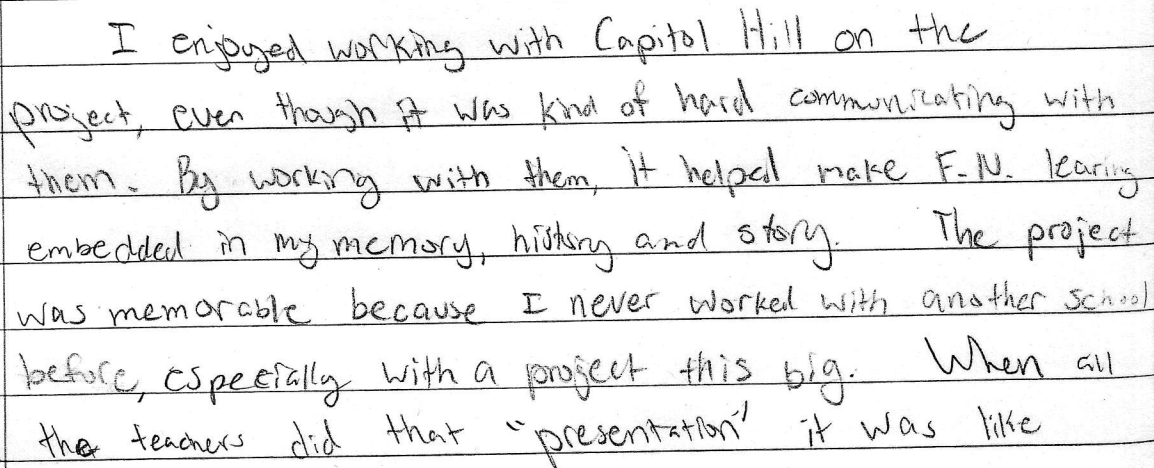 I enjoyed working with Capitol Hill on the
project, even though it was kind of hard communicating with
them. By working with them, it helped make F.N. learing
embedded in my memory, history and story. The project
was memorable because I never worked with another school
before, especially with a project this big. When all
the teachers did that "presentation" it was like